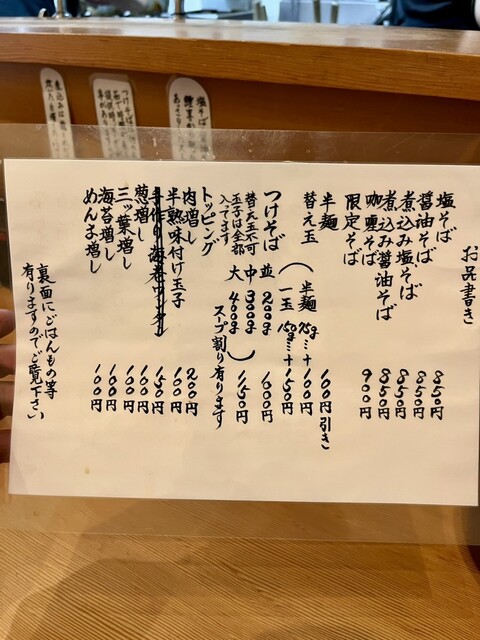 お品書き
塩そば 850円
醤油そば 850円
煮込み塩そば 850円
煮込み醤油そば 850円
咖喱そば
限定そば 900円
半麺 100円引き
替え玉 （半麺 75g…＋100円
一玉 150g…＋150円
つけそば 並 200g 1000円
替え玉不可 中 300g
玉子は全部入ってます 大 400g） 1150円
スープ割り有ります
トッピング
肉増し 200円
半熟味付け玉子 100円
150円
葱増し 100円
三ッ葉増し 100円
海苔増し 100円
めんま増し 100円
裏面にごはんもの等
有りますのでご覧下さい
塩そば
つけそば
煮込み